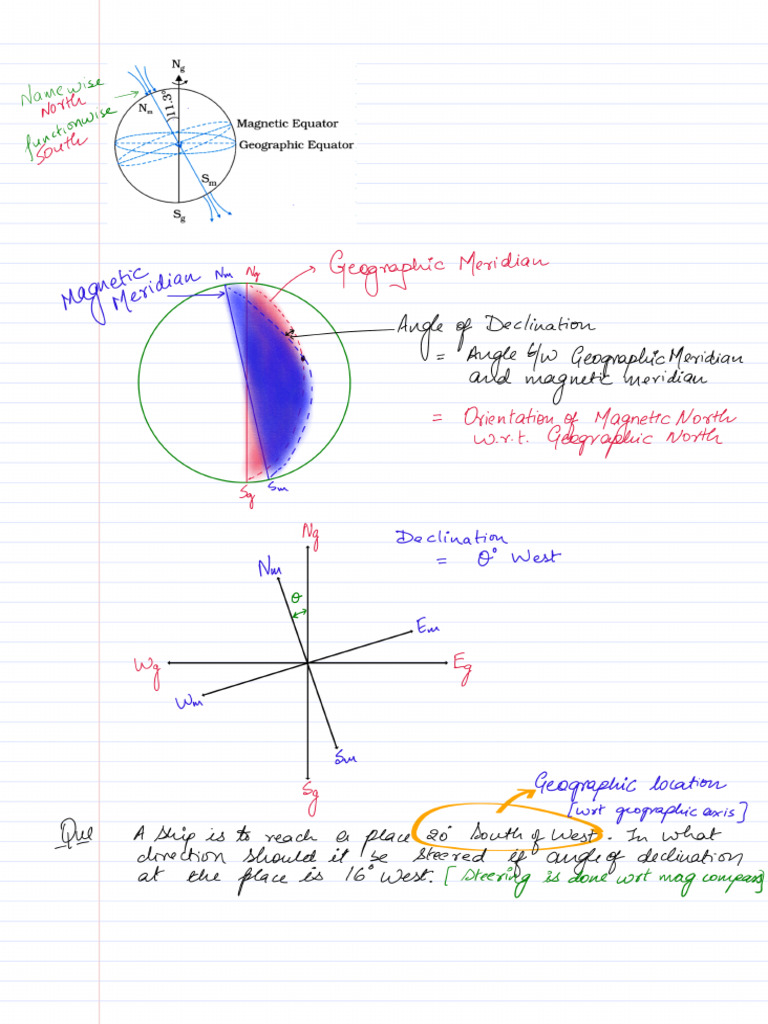 Ng
Namewise
North
functionwise
South
Nm
11.3°
Magnetic Equator
Geographic Equator
Sm
Sg
Magnetic
Meridian
Nm
Ng
Geographic Meridian
Angle of Declination
= Angle b/w Geographic Meridian
and magnetic meridian
= Orientation of Magnetic North
w.r.t. Geographic North
Sg
Sm
Ng
Declination
= θ° West
Nm
θ
Em
Wg
Eg
Wm
Sm
Sg
Geographic location
[wrt geographic axis]
Que A ship is to reach a place 20° South of West. In what
direction should it be steered if angle of declination
at the place is 16° West. [Steering is done wrt mag compass]